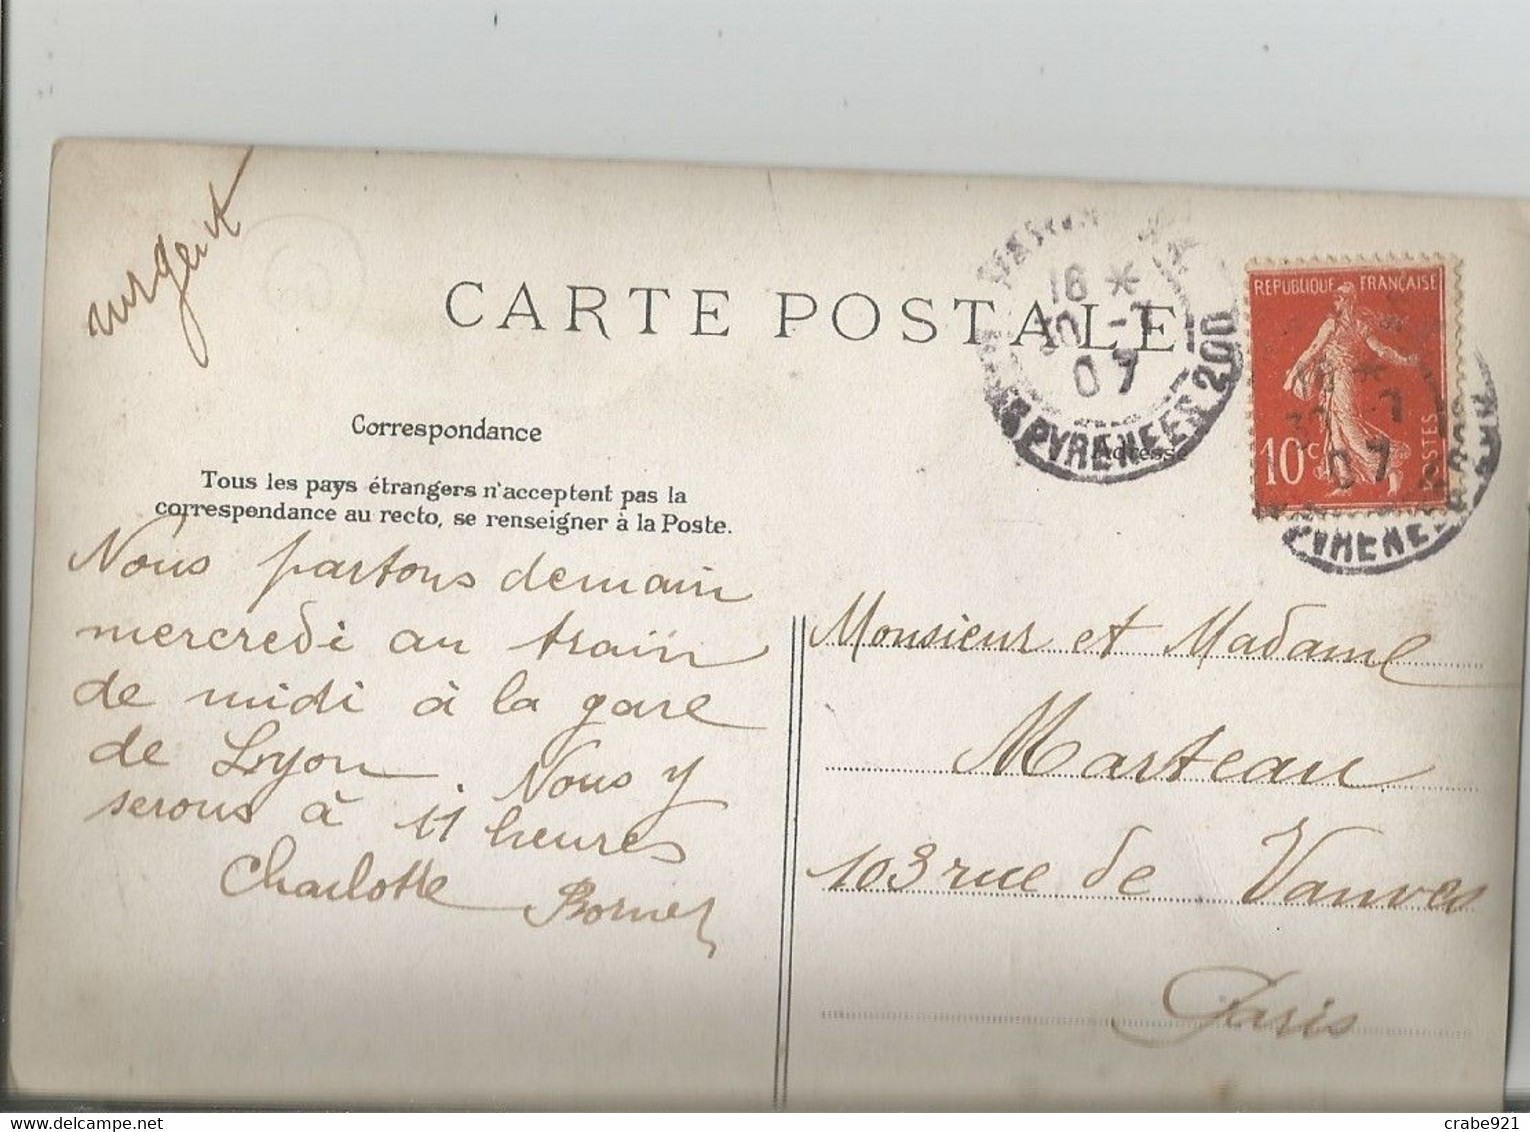 urgent
CARTE POSTALE
18 *
30 -7
07
PYRENEES 200
REPUBLIQUE FRANÇAISE
10c
POSTES
Correspondance
Adresse
Tous les pays étrangers n'acceptent pas la
correspondance au recto, se renseigner à la Poste.
Nous partons demain
mercredi au train
de midi à la gare
de Lyon. Nous y
serons à 11 heures
Charlotte
Monsieur et Madame
Marteau
103 rue de Vanves
Paris
crabe921